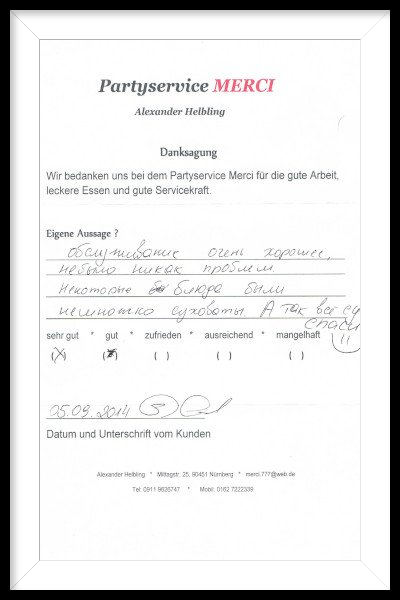 Partyservice MERCI
Alexander Helbling
Danksagung
Wir bedanken uns bei dem Partyservice Merci für die gute Arbeit,
leckere Essen und gute Servicekraft.
Eigene Aussage ?
обслуживание очень хорошее,
небыло никак проблем.
Некоторые блюда были
немножко суховаты. А так все су
спаси
!!
sehr gut * gut * zufrieden * ausreichend * mangelhaft
(X) (X) ( ) ( ) ( )
05.09.2014
Datum und Unterschrift vom Kunden
Alexander Helbling * Mittagstr. 25, 90451 Nürnberg * merci.777@web.de
Tel: 0911 9626747 * Mobil: 0162 7222339